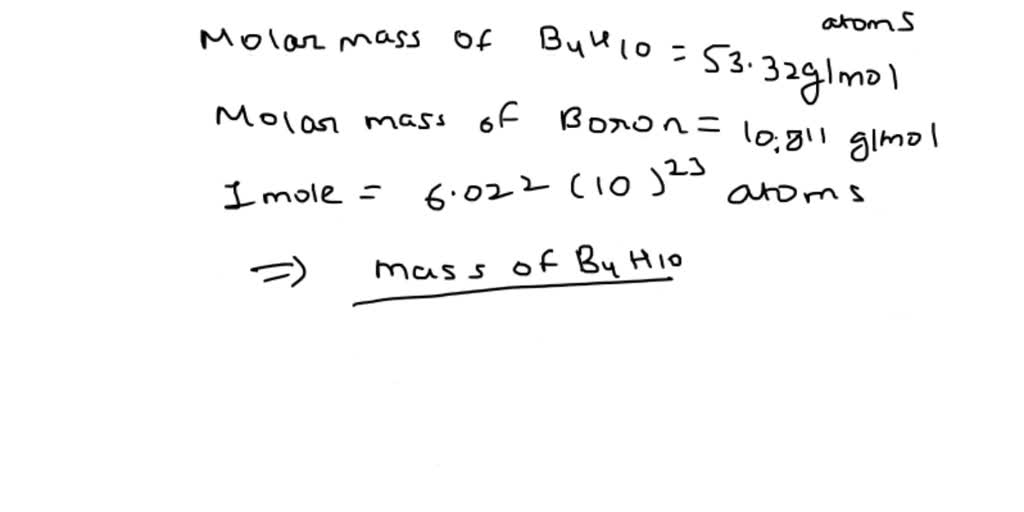 atoms
Molar mass of B4H10 = 53.32g/mol
Molar mass of Boron = 10.811 g/mol
1 mole = 6.022 (10)23 atoms
=> mass of B4H10